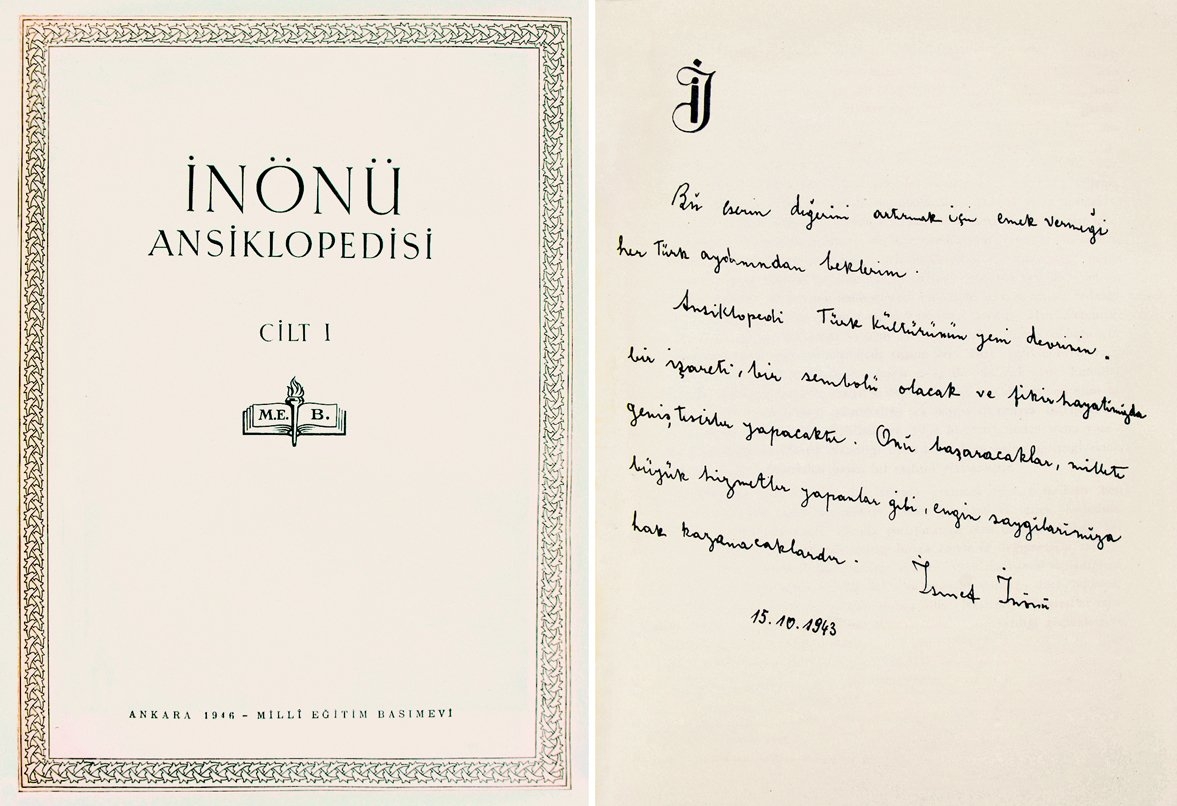 İNÖNÜ
ANSİKLOPEDİSİ
CİLT I
M.E. B.
ANKARA 1946 – MİLLÎ EĞİTİM BASIMEVİ
İİ
Bu eserin değerini artırmak için emek vermeği
her Türk aydınından beklerim.
Ansiklopedi Türk kültürünün yeni devrinin
bir işareti, bir sembolü olacak ve fikir hayatımızda
geniş tesirler yapacaktır. Onu başaracaklar, millete
büyük hizmetler yapanlar gibi, engin saygılarımıza
hak kazanacaklardır.
İsmet İnönü
15.10.1943